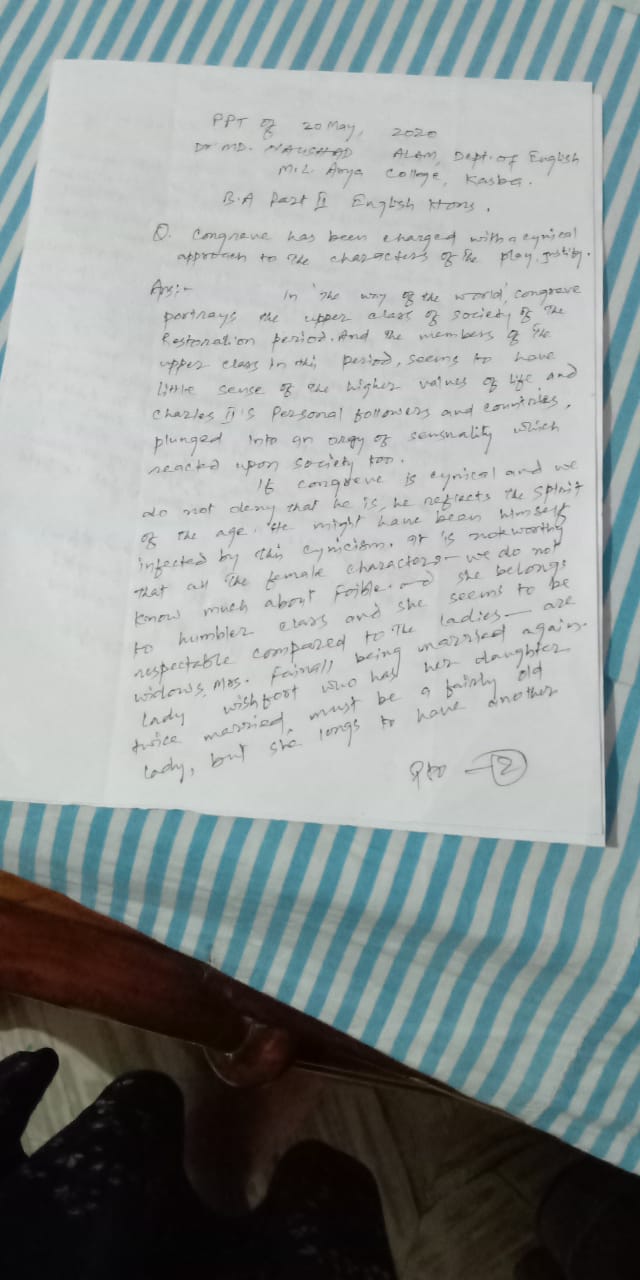 PPT of 20 May, 2020
Dr MD. NAUSHAD ALAM, Dept. of English
M.L. Arya College, Kasba.
B.A Part II English Hons.
Q. Congreve has been charged with a cynical
approach to the characters of the play, justify.
Ans:- In 'The way of the world', congreve
portrays the upper class of society of the
Restoration period. And the members of the
upper class in this period, seems to have
little sense of the higher values of life and
Charles II's Personal followers and countries,
plunged into an orgy of sensuality which
reacted upon society too.
If congreve is cynical and we
do not deny that he is, he reflects the spirit
of the age. He might have been himself
infected by this cynicism. It is noteworthy
that all the female characters — we do not
know much about Foible. and she belongs
to humbler class and she seems to be
respectable compared to the ladies — are
widows, Mrs. Fainall being married again.
Lady wishfort who has her daughter
twice married, must be a fairly old
lady, but she longs to have another
Pto - 2